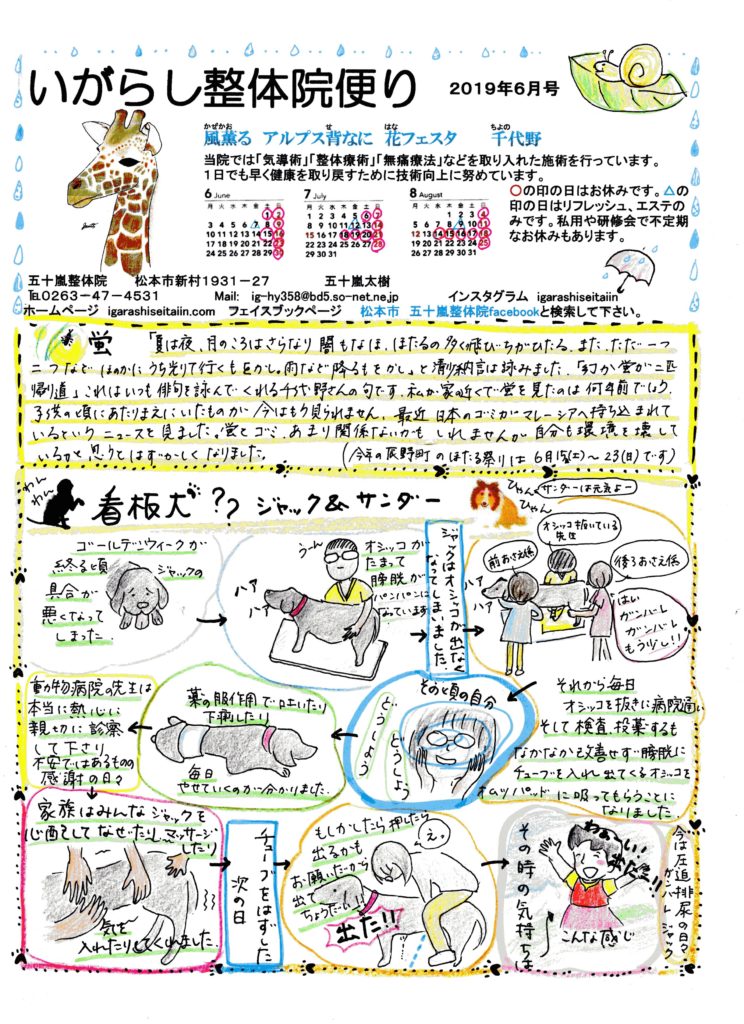 いがらし整体院便り
2019年6月号
かぜかお せ はな ちよの
風薫る アルプス背なに 花フェスタ 千代野
当院では「気導術」「整体療術」「無痛療法」などを取り入れた施術を行っています。
1日でも早く健康を取り戻すために技術向上に努めています。
6 June
月 火 水 木 金 土 日
1 2
3 4 5 6 7 8 9
10 11 12 13 14 15 16
17 18 19 20 21 22 23
24 25 26 27 28 29 30
7 July
月 火 水 木 金 土 日
1 2 3 4 5 6 7
8 9 10 11 12 13 14
15 16 17 18 19 20 21
22 23 24 25 26 27 28
29 30 31
8 August
月 火 水 木 金 土 日
1 2 3 4
5 6 7 8 9 10 11
12 13 14 15 16 17 18
19 20 21 22 23 24 25
26 27 28 29 30 31
○の印の日はお休みです。△の
印の日はリフレッシュ、エステの
みです。私用や研修会で不定期
なお休みもあります。
五十嵐整体院 松本市新村1931-27 五十嵐太樹
℡0263-47-4531 Mail: ig-hy358@bd5.so-net.ne.jp インスタグラム igarashiseitaiin
ホームページ igarashiseitaiin.com フェイスブックページ 松本市 五十嵐整体院facebookと検索して下さい。
蛍 「夏は夜、月のころはさらなり 闇もなほ、ほたるの多く飛びちがひたる、また、ただ一つ
二つなど ほのかにうち光りて行くもをかし。雨など降るもをかし」と清少納言は詠みました。
帰り道」これはいつも俳句を詠んでくれる千代野さんの句です。私が家の近くで蛍を見たのは何年前でしょう
子供の頃にあたりまえにいたものが今はもう見られません。最近 日本のゴミがマレーシアへ持ち込まれて
いるというニュースを見ました。蛍とゴミ、あまり関係ないかもしれませんが自分も環境を壊して
いるかと思うとはずかしくなりました。 (今年の辰野町のほたる祭りは6月15(土)~23(日)です)
わん
わん
看板犬?? ジャック&サンダー
ひゃん
ひゃん
サンダーは元気よー
ゴールデンウィークが
終る頃
ジャックの
具合が
悪くなって
しまった
うーん
ハァ
ハァ
オシッコが
たまって
膀胱が
パンパンに
なっています
ジャックはオシッコが出なく
なってしまいました。
前おさえ係
オシッコ抜いている
先生
後ろおさえ係
ハァ
ハァ
はい
ガンバレ
ガンバレ
もう少し!!
それから毎日
オシッコを抜きに病院通い
そして検査、投薬するも
なかなか改善せず膀胱に
チューブを入れ出てくるオシッコを
オムツパッドに吸ってもらうことに
なりました
その頃の自分
どうしよう
どうしよう
薬の服作用で吐いたり
下痢したり
毎日
やせていくのが分かりました
動物病院の先生は
本当に熱心に
親切に診察
して下さり
不安ではあるものの
感謝の日々
家族はみんなジャックを
心配して なぜたり、マッサージ
したり
気を
入れたりしてくれました
チューブをはずした
次の日
もしかしたら押したら
出るかも
お願いだから
出て
ちょうだい!!
え。
出た!!
その時の気持ちは
わぁーい
出た!!
こんな感じ
今は圧迫排尿の日々
ガンバレ ジャック